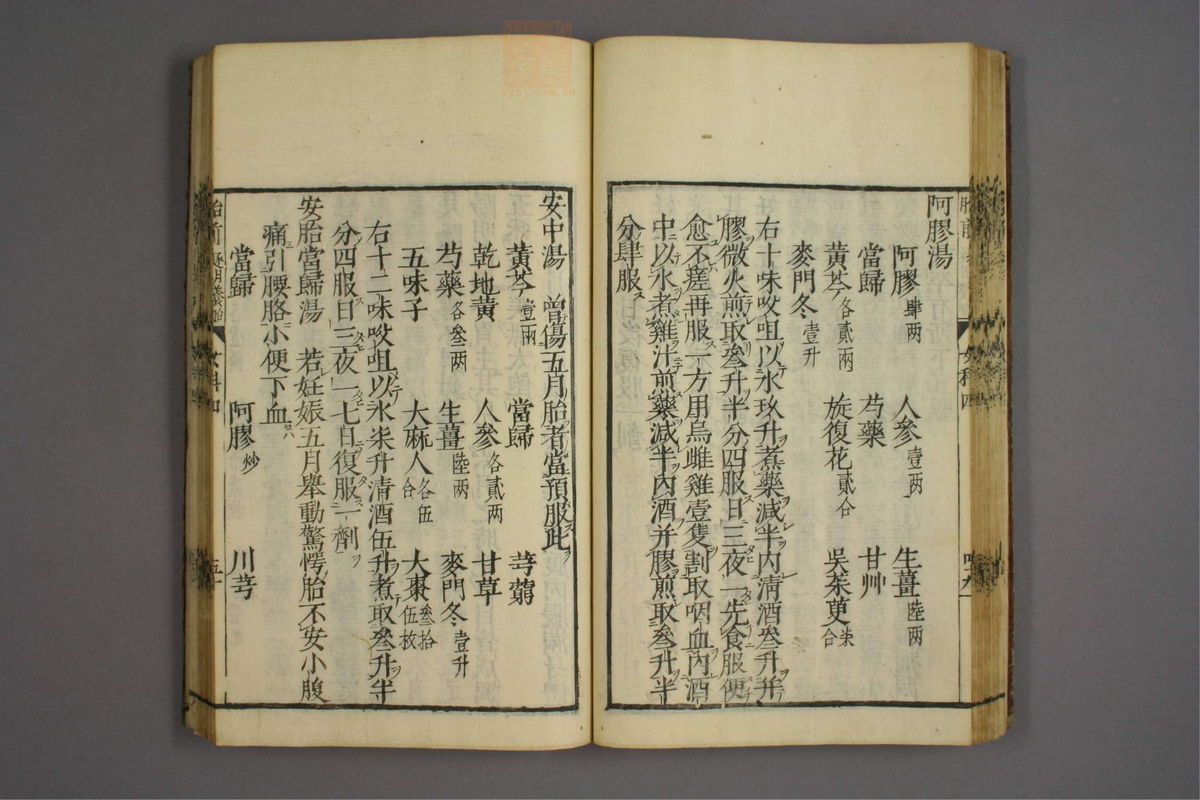 阿膠湯
阿膠肆兩 人參壹兩 生薑陸兩
當歸 芍藥 甘艸
黃芩各貳兩 旋復花貳合 吳茱萸柒合
麥門冬壹升
右十味㕮咀以水玖升煮藥減半內清酒叁升并
膠微火煎取叁升半分四服日三夜一先食服便
愈不瘥再服一方用烏雌雞壹隻割取咽血內酒
中以水煮雞汁煎藥減半內酒并膠煎取叁升半
分肆服
安中湯 曾傷五月胎者當預服此
黃芩壹兩 當歸 芎藭
乾地黃 人參各貳兩 甘草
芍藥各叁兩 生薑陸兩 麥門冬壹升
五味子 大麻人各伍合 大棗叁拾伍枚
右十二味㕮咀以水柒升清酒伍升煮取叁升半
分四服日三夜一七日復服一劑
安胎當歸湯 若妊娠五月舉動驚愕胎不安小腹
痛引腰胳小便下血
當歸 阿膠炒 川芎
胎前 逐月養胎 女科四 五十